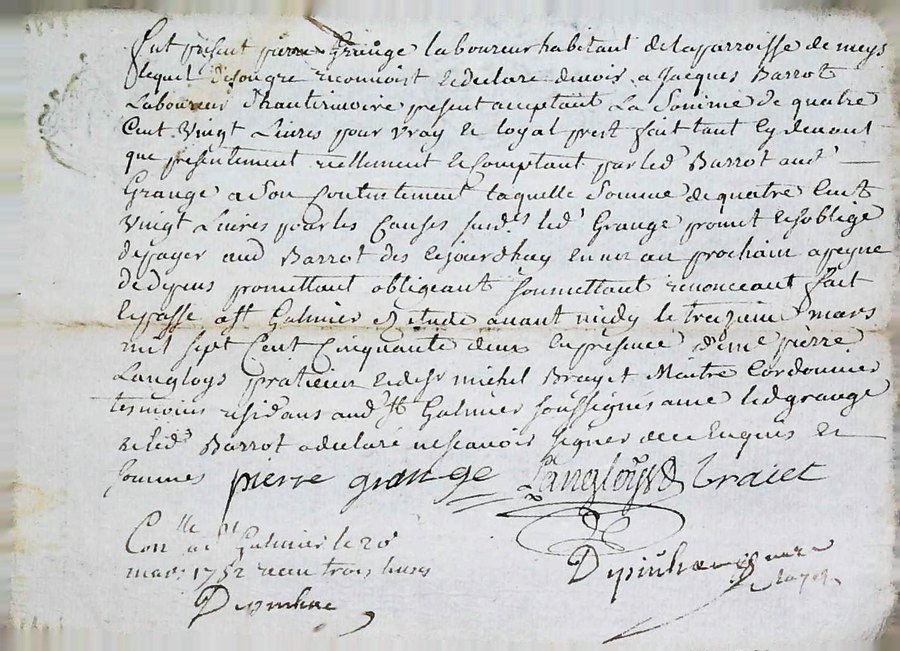 fut présent pierre Grange laboureur habitant de la parroisse de meys
lequel de son gré reconnoist et declare devoir a Jacques Barrot
Laboureur d'hauterivoire présent acceptant La Somme de quatre
Cent Vingt Livres pour vray et loyal prest fait tant cy devant
que présentement réellement et Comptant par led Barrot aud
Grange a Son Contentement laquelle Somme de quatre Cent
Vingt Livres pour les Causes susd led Grange promet et s'oblige
de payer aud Barrot des cejourdhuy en un an prochain a peyne
de depens promettant obligeant soumettant renonceant fait
et passé a St Galmier Etude avant midy le treizieme mars
mil sept Cent Cinquante deux en présence de me pierre
Langloys praticien et de sr michel Brayet Maitre Cordonnier
temoins residans aud St Galmier soussignés avec led grange
et led Barrot a declaré ne scavoir signer de ce Enquis et
sommés pierre grange Langloys Braiet
Conlle a St Galmier le 20
mars 1752 reçu trois livres
Depinhac
Depinhac